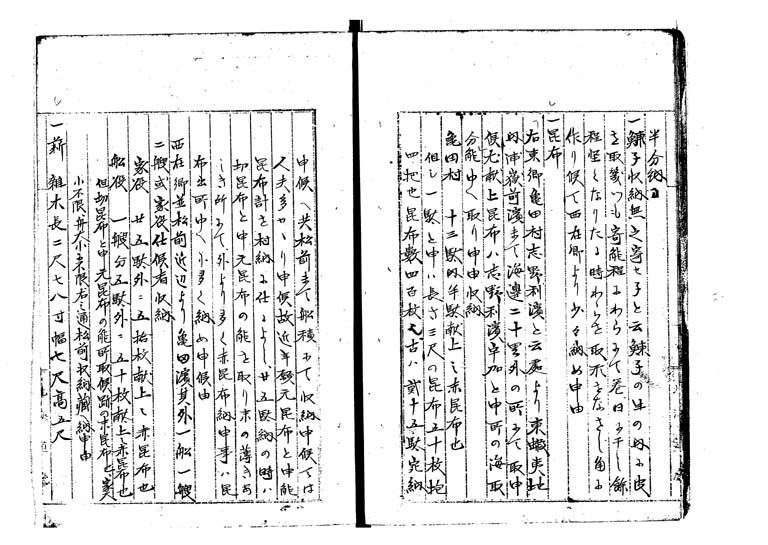 半分納ㇽ
一鰊子収納無之寄セ子と云鰊子の生の内に皮
を取幾つも寄能程にわらにて巻日に干し餘
程堅くなりたる時わらを取形をなをし角に
作り候て西在郷より少々納め申由
一昆布
右東郷亀田村志野利濱と云處より東蝦夷地
内浦嶽前濱まて海邊二十里外の所にて取申
候尤献上昆布ハ志野利濱宇加と申所の海取
分能申候取り申由収納
亀田村 十三駄内半駄献上ニ赤昆布也
但し一駄と申ハ長さ三尺の昆布五十枚
四把也昆布数四百枚古ハ貳十五駄宛納
申候へ共松前まて船積にて収納申候てハ
人夫多かゝり申候故近年種元昆布と申能
昆布計を村納に仕によし廿五駄納の時ハ
切昆布と申元昆布の能を取り末の薄きあ
しき所にて外より多く赤昆布納申事ハ昆
布出所申候小多く納め申候由
西在郷並松前近辺より亀田濱其外一船一艘
二艘或家役仕候者収納
家役 廿五駄外ニ五拾枚献上ニ赤昆布也
船役 一艘分五駄外ニ五十枚献上ニ赤昆布也
但切昆布と申元昆布の能所取候跡の末昆布也家
小不限舟大小末限右之通松前収納藏納申由
一薪 雑木長二尺七八寸幅七尺高五尺